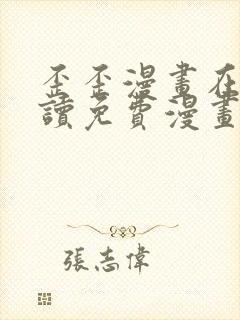 歪歪漫畫在
讀免費漫畫
張志偉